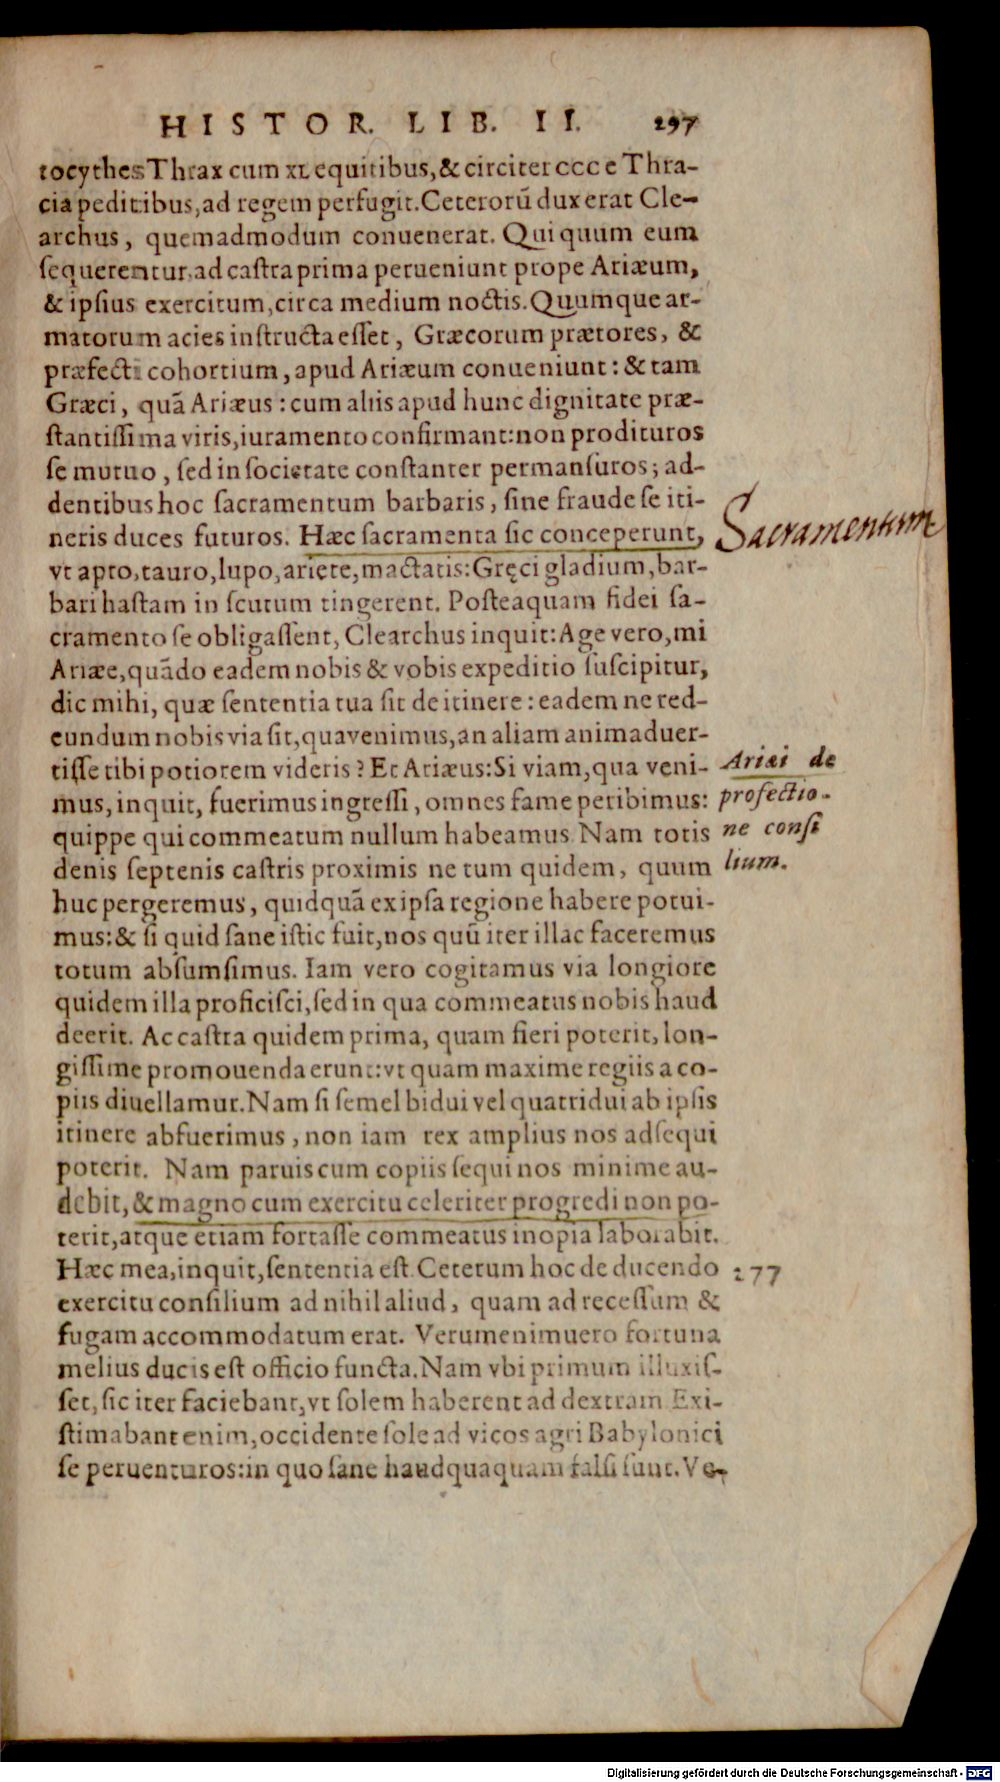 HISTOR. LIB. II. 297
tocythes Thrax cum XL equitibus, & circiter CCC e Thra-
cia peditibus, ad regem perfugit. Ceterorũ dux erat Cle-
archus, quemadmodum conuenerat. Qui quum eum
ſequerentur, ad caſtra prima perueniunt prope Ariæum,
& ipſius exercitum, circa medium noctis. Quumque ar-
matorum acies inſtructa eſſet, Græcorum prætores, &
præfecti cohortium, apud Ariæum conueniunt: & tam
Græci, quã Ariæus: cum aliis apud hunc dignitate præ-
ſtantiſſima viris, iuramento confirmant: non prodituros
ſe mutuo, ſed in ſocietate conſtanter permanſuros; ad-
dentibus hoc ſacramentum barbaris, ſine fraude ſe iti-
neris duces futuros. Hæc ſacramenta ſic conceperunt,
Sacramentum
vt apro, tauro, lupo, ariete, mactatis: Gręci gladium, bar-
bari haſtam in ſcutum tingerent. Poſteaquam fidei ſa-
cramento ſe obligaſſent, Clearchus inquit: Age vero, mi
Ariæe, quãdo eadem nobis & vobis expeditio ſuſcipitur,
dic mihi, quæ ſententia tua ſit de itinere: eadem ne red-
eundum nobis via ſit, qua venimus, an aliam animaduer-
tiſſe tibi potiorem videris? Et Ariæus: Si viam, qua veni-
Ariæi de
mus, inquit, fuerimus ingreſſi, omnes fame peribimus:
profectio-
quippe qui commeatum nullum habeamus. Nam totis
ne conſi
denis ſeptenis caſtris proximis ne tum quidem, quum
lium.
huc pergeremus, quidquã ex ipſa regione habere potui-
mus: & ſi quid ſane iſtic fuit, nos quũ iter illac faceremus
totum abſumſimus. Iam vero cogitamus via longiore
quidem illa proficiſci, ſed in qua commeatus nobis haud
deerit. Ac caſtra quidem prima, quam fieri poterit, lon-
giſſime promouenda erunt: vt quam maxime regiis a co-
piis diuellamur. Nam ſi ſemel bidui vel quatridui ab ipſis
itinere abfuerimus, non iam rex amplius nos adſequi
poterit. Nam paruis cum copiis ſequi nos minime au-
debit, & magno cum exercitu celeriter progredi non po-
terit, atque etiam fortaſſe commeatus inopia laborabit.
Hæc mea, inquit, ſententia eſt. Ceterum hoc de ducendo
277
exercitu conſilium ad nihil aliud, quam ad receſſum &
fugam accommodatum erat. Verumenimuero fortuna
melius ducis eſt officio functa. Nam vbi primum illuxiſ-
ſet, ſic iter faciebant, vt ſolem haberent ad dextram. Exi-
ſtimabant enim, occidente ſole ad vicos agri Babylonici
ſe peruenturos: in quo ſane haudquaquam falſi ſunt. Ve-
Digitalisierung gefördert durch die Deutsche Forschungsgemeinschaft - DFG